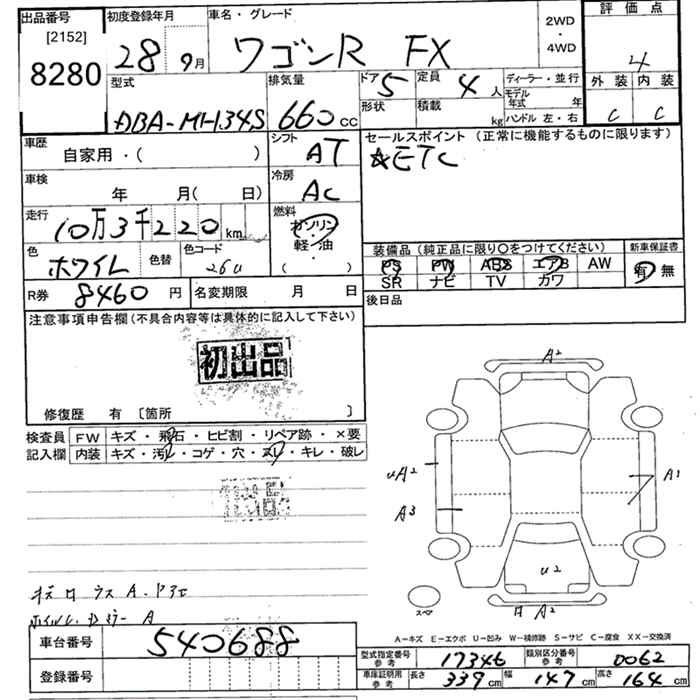 出品番号 初度登録年月 車名・グレード 2WD・4WD 評価点
[2152]
8280 28 9月 ワゴンR FX 4
型式 排気量 ドア 5 定員 4人 ディーラー・並行 外装 内装
DBA-MH34S 660cc 形状 積載 kg モデル年式 年 ハンドル 左・右 C C
車歴 自家用・( ) シフト AT セールスポイント (正常に機能するものに限ります)
☆ETC
車検 年 月( 日) 冷房 AC
走行 10万3千220km 燃料 ガソリン 軽・油 ( )
色 ホワイト 色替 色コード 26U
装備品(純正品に限り〇をつけてください) 新車保証書
PS PW ABS エアB AW 有・無
SR ナビ TV カワ
R券 8460円 名変期限 月 日 後日品
注意事項申告欄(不具合内容等は具体的に記入して下さい)
初出品
修復歴 有 [箇所 ]
検査員 FW キズ・飛石・ヒビ割・リペア跡・×要
記入欄 内装 キズ・汚れ・コゲ・穴・スレ・キレ・破レ
A2
UA2 A1
A3
U2
スペア A A2
A-キズ E-エクボ U-凹み W-補修跡 S-サビ C-腐食 XX-交換済
車台番号 540688
登録番号
型式指定番号 参考 17346 類別区分番号 参考 0062
車庫証明用 参考 長さ 339cm 幅 147cm 高さ 164cm